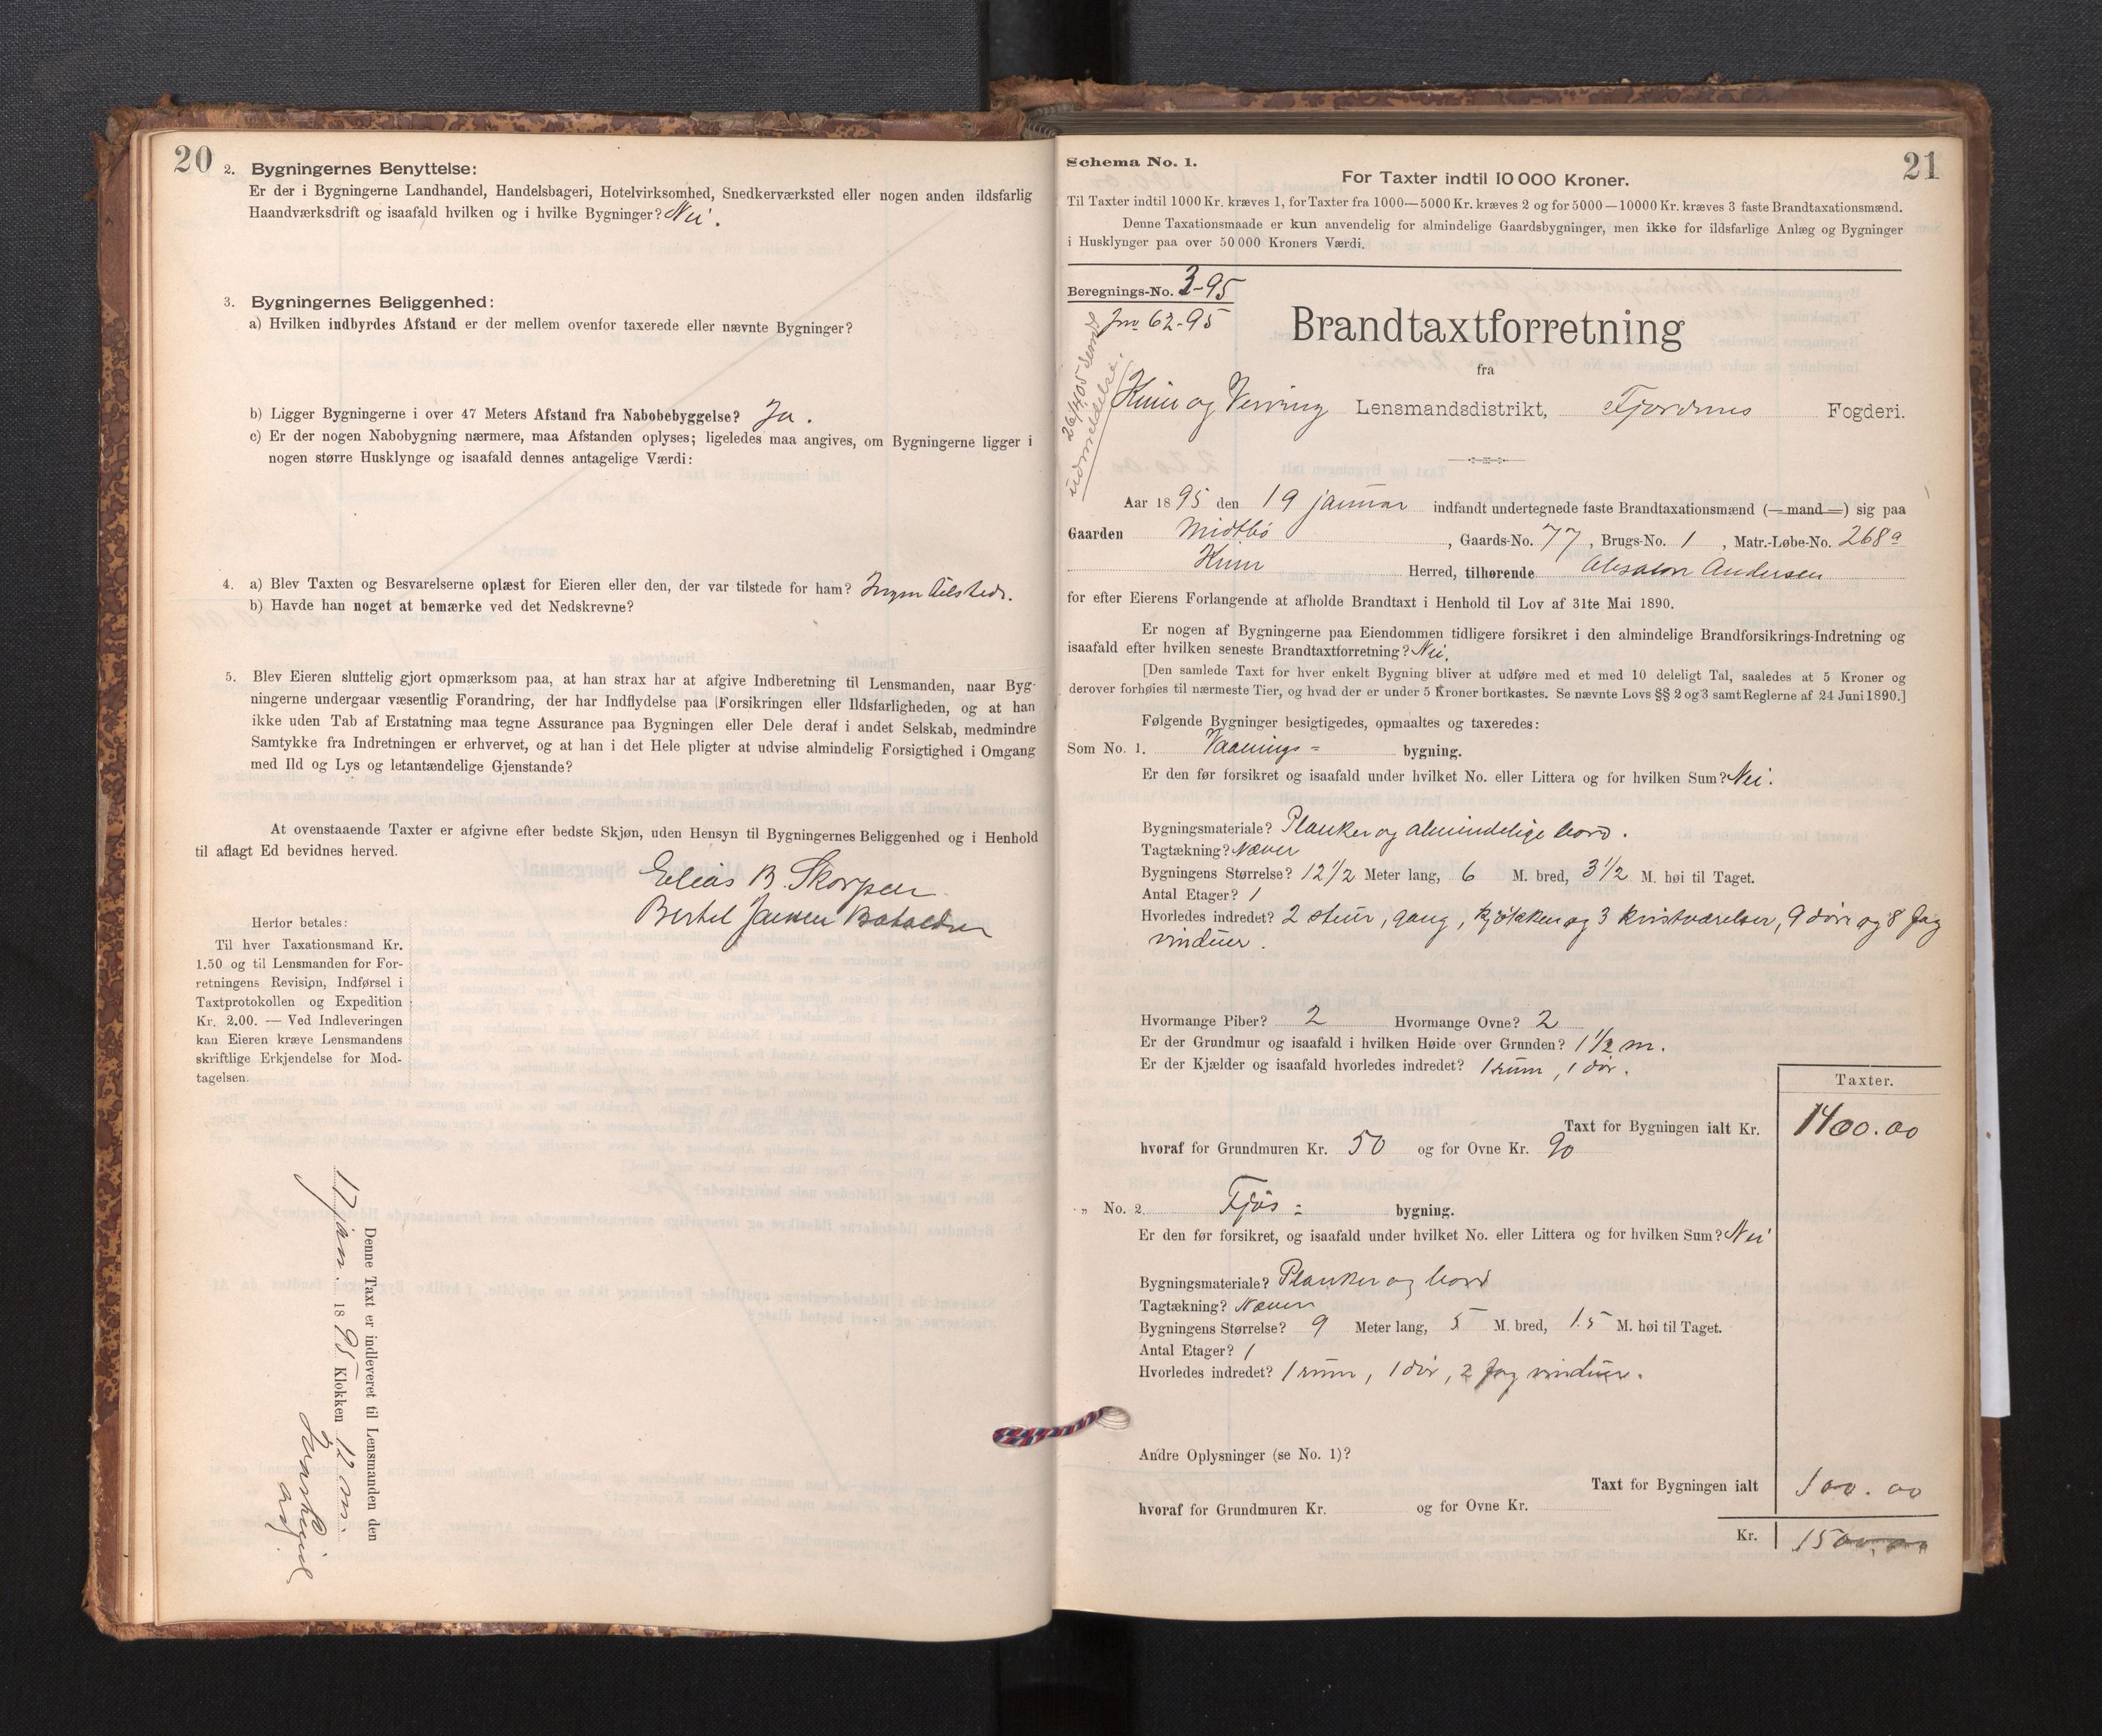 20
2. Bygningernes Benyttelse:
Er der i Bygningerne Landhandel, Handelsbageri, Hotelvirksomhed, Snedkerværksted eller nogen anden ildsfarlig
Haandværksdrift og isaafald hvilken og i hvilke Bygninger? Nei.
3. Bygningernes Beliggenhed:
a) Hvilken indbyrdes Afstand er der mellem ovenfor taxerede eller nævnte Bygninger?
b) Ligger Bygningerne i over 47 Meters Afstand fra Nabobebyggelse? Ja.
c) Er der nogen Nabobygning nærmere, maa Afstanden oplyses; ligeledes maa angives, om Bygningerne ligger i
nogen større Husklynge og isaafald dennes antagelige Værdi:
4. a) Blev Taxten og Besvarelserne oplæst for Eieren eller den, der var tilstede for ham? Ingen tilstede.
b) Havde han noget at bemærke ved det Nedskrevne?
5. Blev Eieren sluttelig gjort opmærksom paa, at han strax har at afgive Indberetning til Lensmanden, naar Byg-
ningerne undergaar væsentlig Forandring, der har Indflydelse paa Forsikringen eller Ildsfarligheden, og at han
ikke uden Tab af Erstatning maa tegne Assurance paa Bygningen eller Dele deraf i andet Selskab, medmindre
Samtykke fra Indretningen er erhvervet, og at han i det Hele pligter at udvise almindelig Forsigtighed i Omgang
med Ild og Lys og letantændelige Gjenstande?
At ovenstaaende Taxter er afgivne efter bedste Skjøn, uden Hensyn til Bygningernes Beliggenhed og i Henhold
til aflagt Ed bevidnes herved.
Elias B. Skorpen
Bertel Jansen Batalden
Herfor betales:
Til hver Taxationsmand Kr.
1.50 og til Lensmanden for For-
retningens Revision, Indførsel i
Taxtprotokollen og Expedition
Kr. 2.00. — Ved Indleveringen
kan Eieren kræve Lensmandens
skriftlige Erkjendelse for Mod-
tagelsen.
Denne Taxt er indleveret til Lensmanden den
17 jan. 1895 Klokken 12 m.
21
Schema No. 1.
For Taxter indtil 10 000 Kroner.
Til Taxter indtil 1000 Kr. kræves 1, for Taxter fra 1000—5000 Kr. kræves 2 og for 5000—10000 Kr. kræves 3 faste Brandtaxationsmænd.
Denne Taxationsmaade er kun anvendelig for almindelige Gaardsbygninger, men ikke for ildsfarlige Anlæg og Bygninger
i Husklynger paa over 50 000 Kroners Værdi.
Beregnings-No. 3-95
Jno 62-95
udmeldelse.
Brandtaxtforretning
fra
Kinn og Lensmandsdistrikt, Fjordenes Fogderi.
Aar 1895 den 19 januar indfandt undertegnede faste Brandtaxationsmænd (—mand—) sig paa
Gaarden Midtbö, Gaards-No. 77, Brugs-No. 1, Matr.-Løbe-No. 268a
Kinn Herred, tilhørende Absalon Andersen
for efter Eierens Forlangende at afholde Brandtaxt i Henhold til Lov af 31te Mai 1890.
Er nogen af Bygningerne paa Eiendommen tidligere forsikret i den almindelige Brandforsikrings-Indretning og
isaafald efter hvilken seneste Brandtaxtforretning? Nei.
[Den samlede Taxt for hver enkelt Bygning bliver at udføre med et med 10 deleligt Tal, saaledes at 5 Kroner og
derover forhøies til nærmeste Tier, og hvad der er under 5 Kroner bortkastes. Se nævnte Lovs §§ 2 og 3 samt Reglerne af 24 Juni 1890.]
Følgende Bygninger besigtigedes, opmaaltes og taxeredes:
Som No. 1. Vaanings= bygning.
Er den før forsikret og isaafald under hvilket No. eller Littera og for hvilken Sum? Nei.
Bygningsmateriale? Planker og almindelige bord.
Tagtækning? Næver
Bygningens Størrelse? 12 1/2 Meter lang, 6 M. bred, 3 1/2 M. høi til Taget.
Antal Etager? 1
Hvorledes indredet? 2 stuer, gang, kjökken og 3 kvistværelser, 9 döre og 8 fag
vinduer.
Hvormange Piber? 2 Hvormange Ovne? 2
Er der Grundmur og isaafald i hvilken Høide over Grunden? 1 1/2 m.
Er der Kjælder og isaafald hvorledes indredet? 1 rum, 1 dör.
Taxter.
Taxt for Bygningen ialt Kr. 1400.00
hvoraf for Grundmuren Kr. 50 og for Ovne Kr. 90
„ No. 2 Fjös= bygning.
Er den før forsikret, og isaafald under hvilket No. eller Littera og for hvilken Sum? Nei
Bygningsmateriale? Planker og bord
Tagtækning? Næver
Bygningens Størrelse? 9 Meter lang, 5 M. bred, 1.5 M. høi til Taget.
Antal Etager? 1
Hvorledes indredet? 1 rum, 1 dör, 2 fag vinduer.
Andre Oplysninger (se No. 1)?
Taxt for Bygningen ialt 100.00
hvoraf for Grundmuren Kr. og for Ovne Kr.
Kr. 1500.00